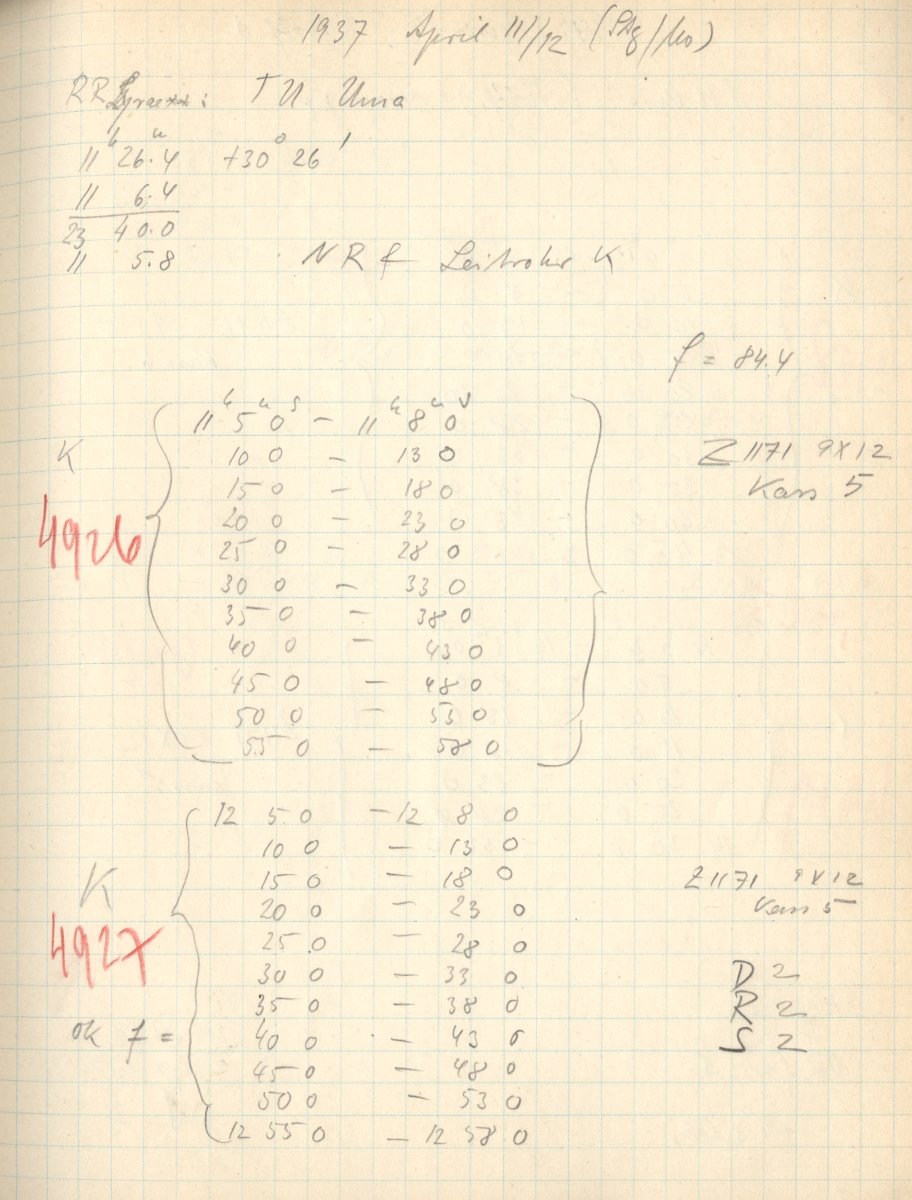 1937 April 11/12 (Stg/Mo)
RR Lyrae : TU Uma
11h 26.4m +30° 26'
11 6.4
23 40.0
11 5.8 NR f Leitrohr K
f = 84.4
11h 5m 0s — 11h 8m 0s
K 10 0 — 13 0 Z 1171 9X12
15 0 — 18 0 Kass 5
4926 20 0 — 23 0
25 0 — 28 0
30 0 — 33 0
35 0 — 38 0
40 0 — 43 0
45 0 — 48 0
50 0 — 53 0
55 0 — 58 0
12 5 0 — 12 8 0
10 0 — 13 0
K 15 0 — 18 0 Z 1171 9X12
20 0 — 23 0 Kass 5
4927 25 0 — 28 0
30 0 — 33 0 D 2
35 0 — 38 0 R 2
ok f = 40 0 — 43 0 S 2
45 0 — 48 0
50 0 — 53 0
12 55 0 — 12 58 0